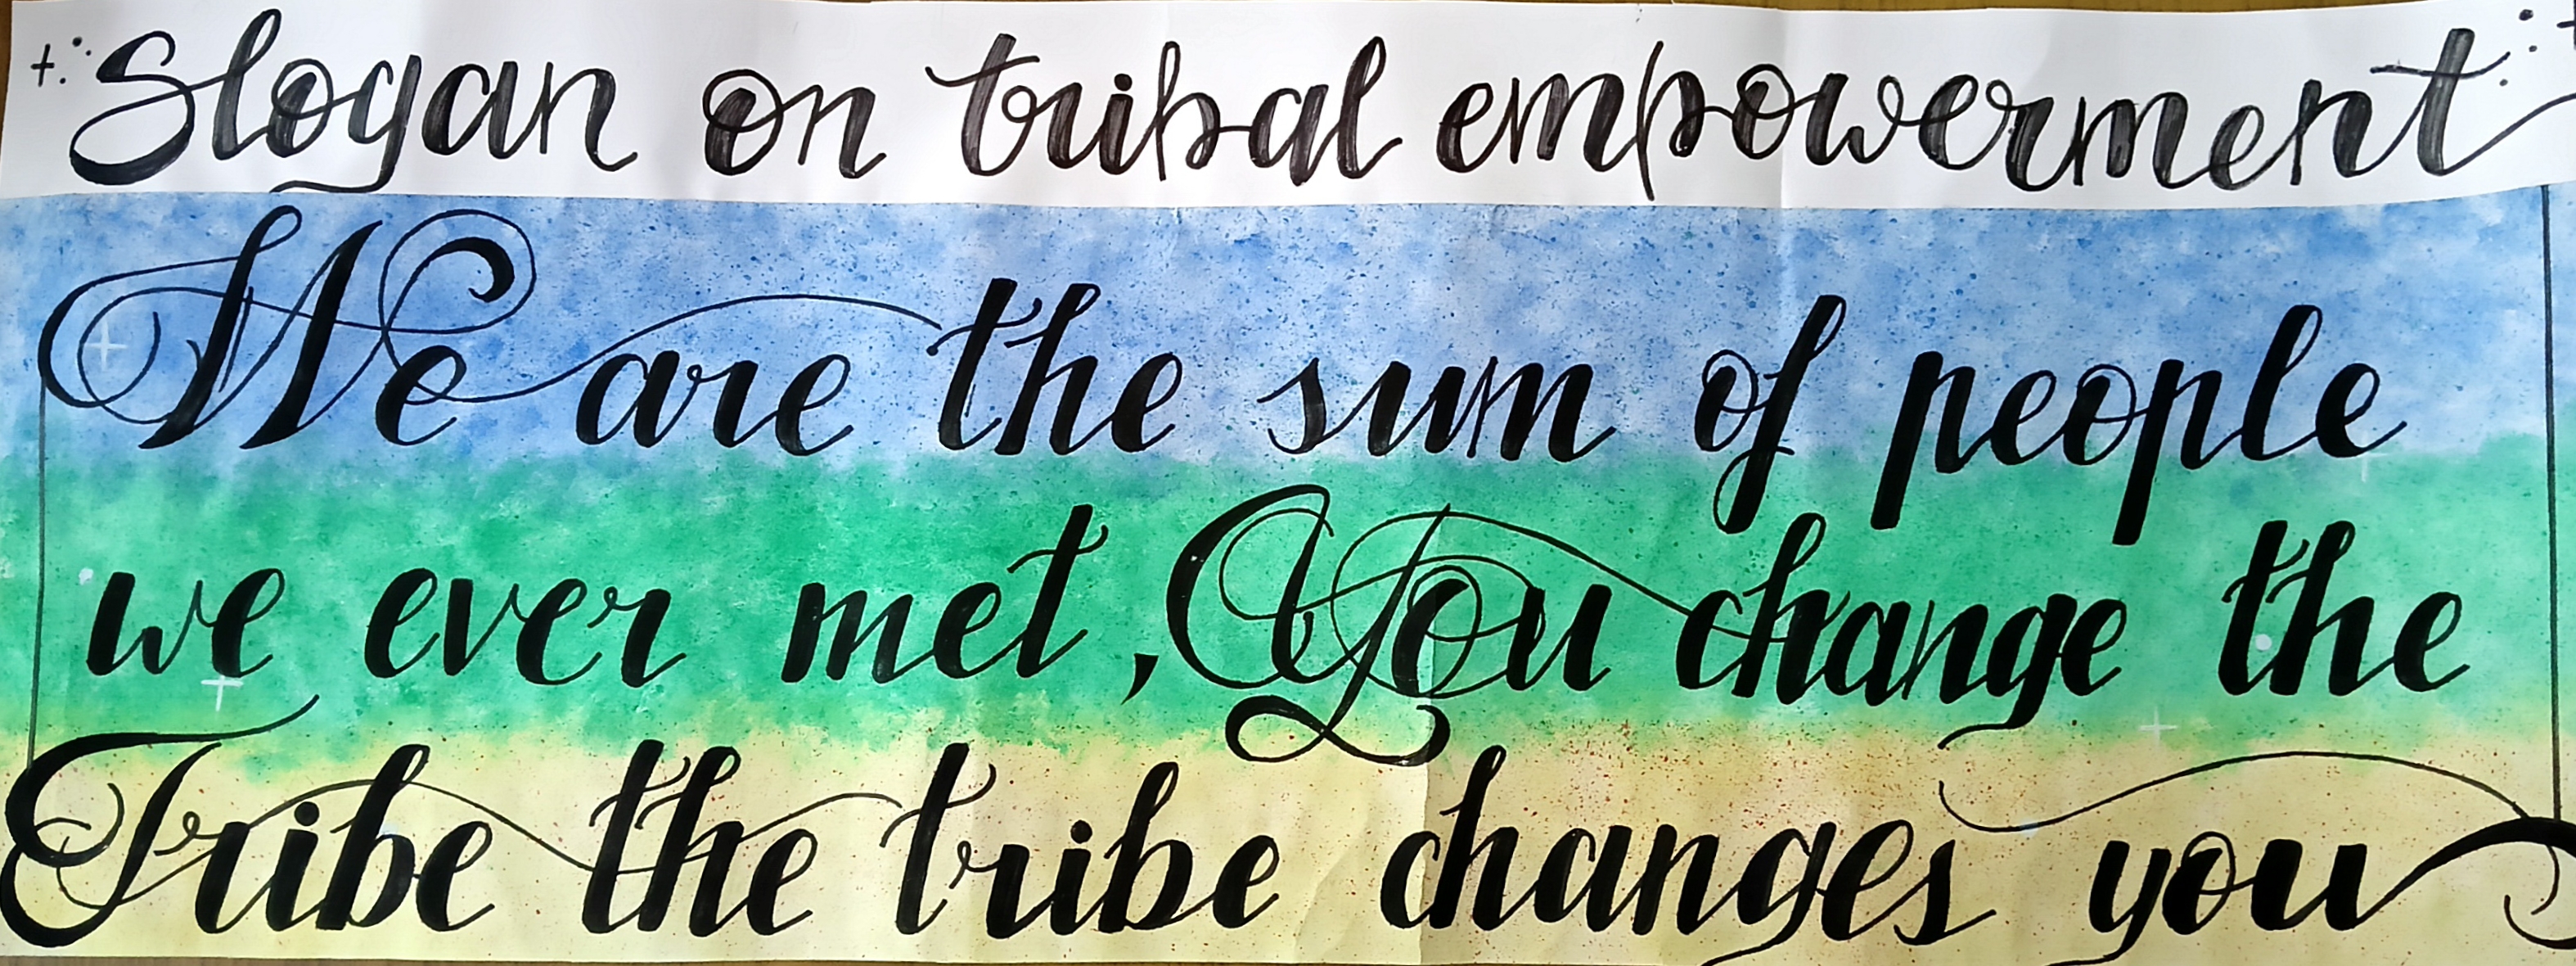 Slogan on tribal empowerment
We are the sum of people
we ever met , You change the
Tribe the tribe changes you